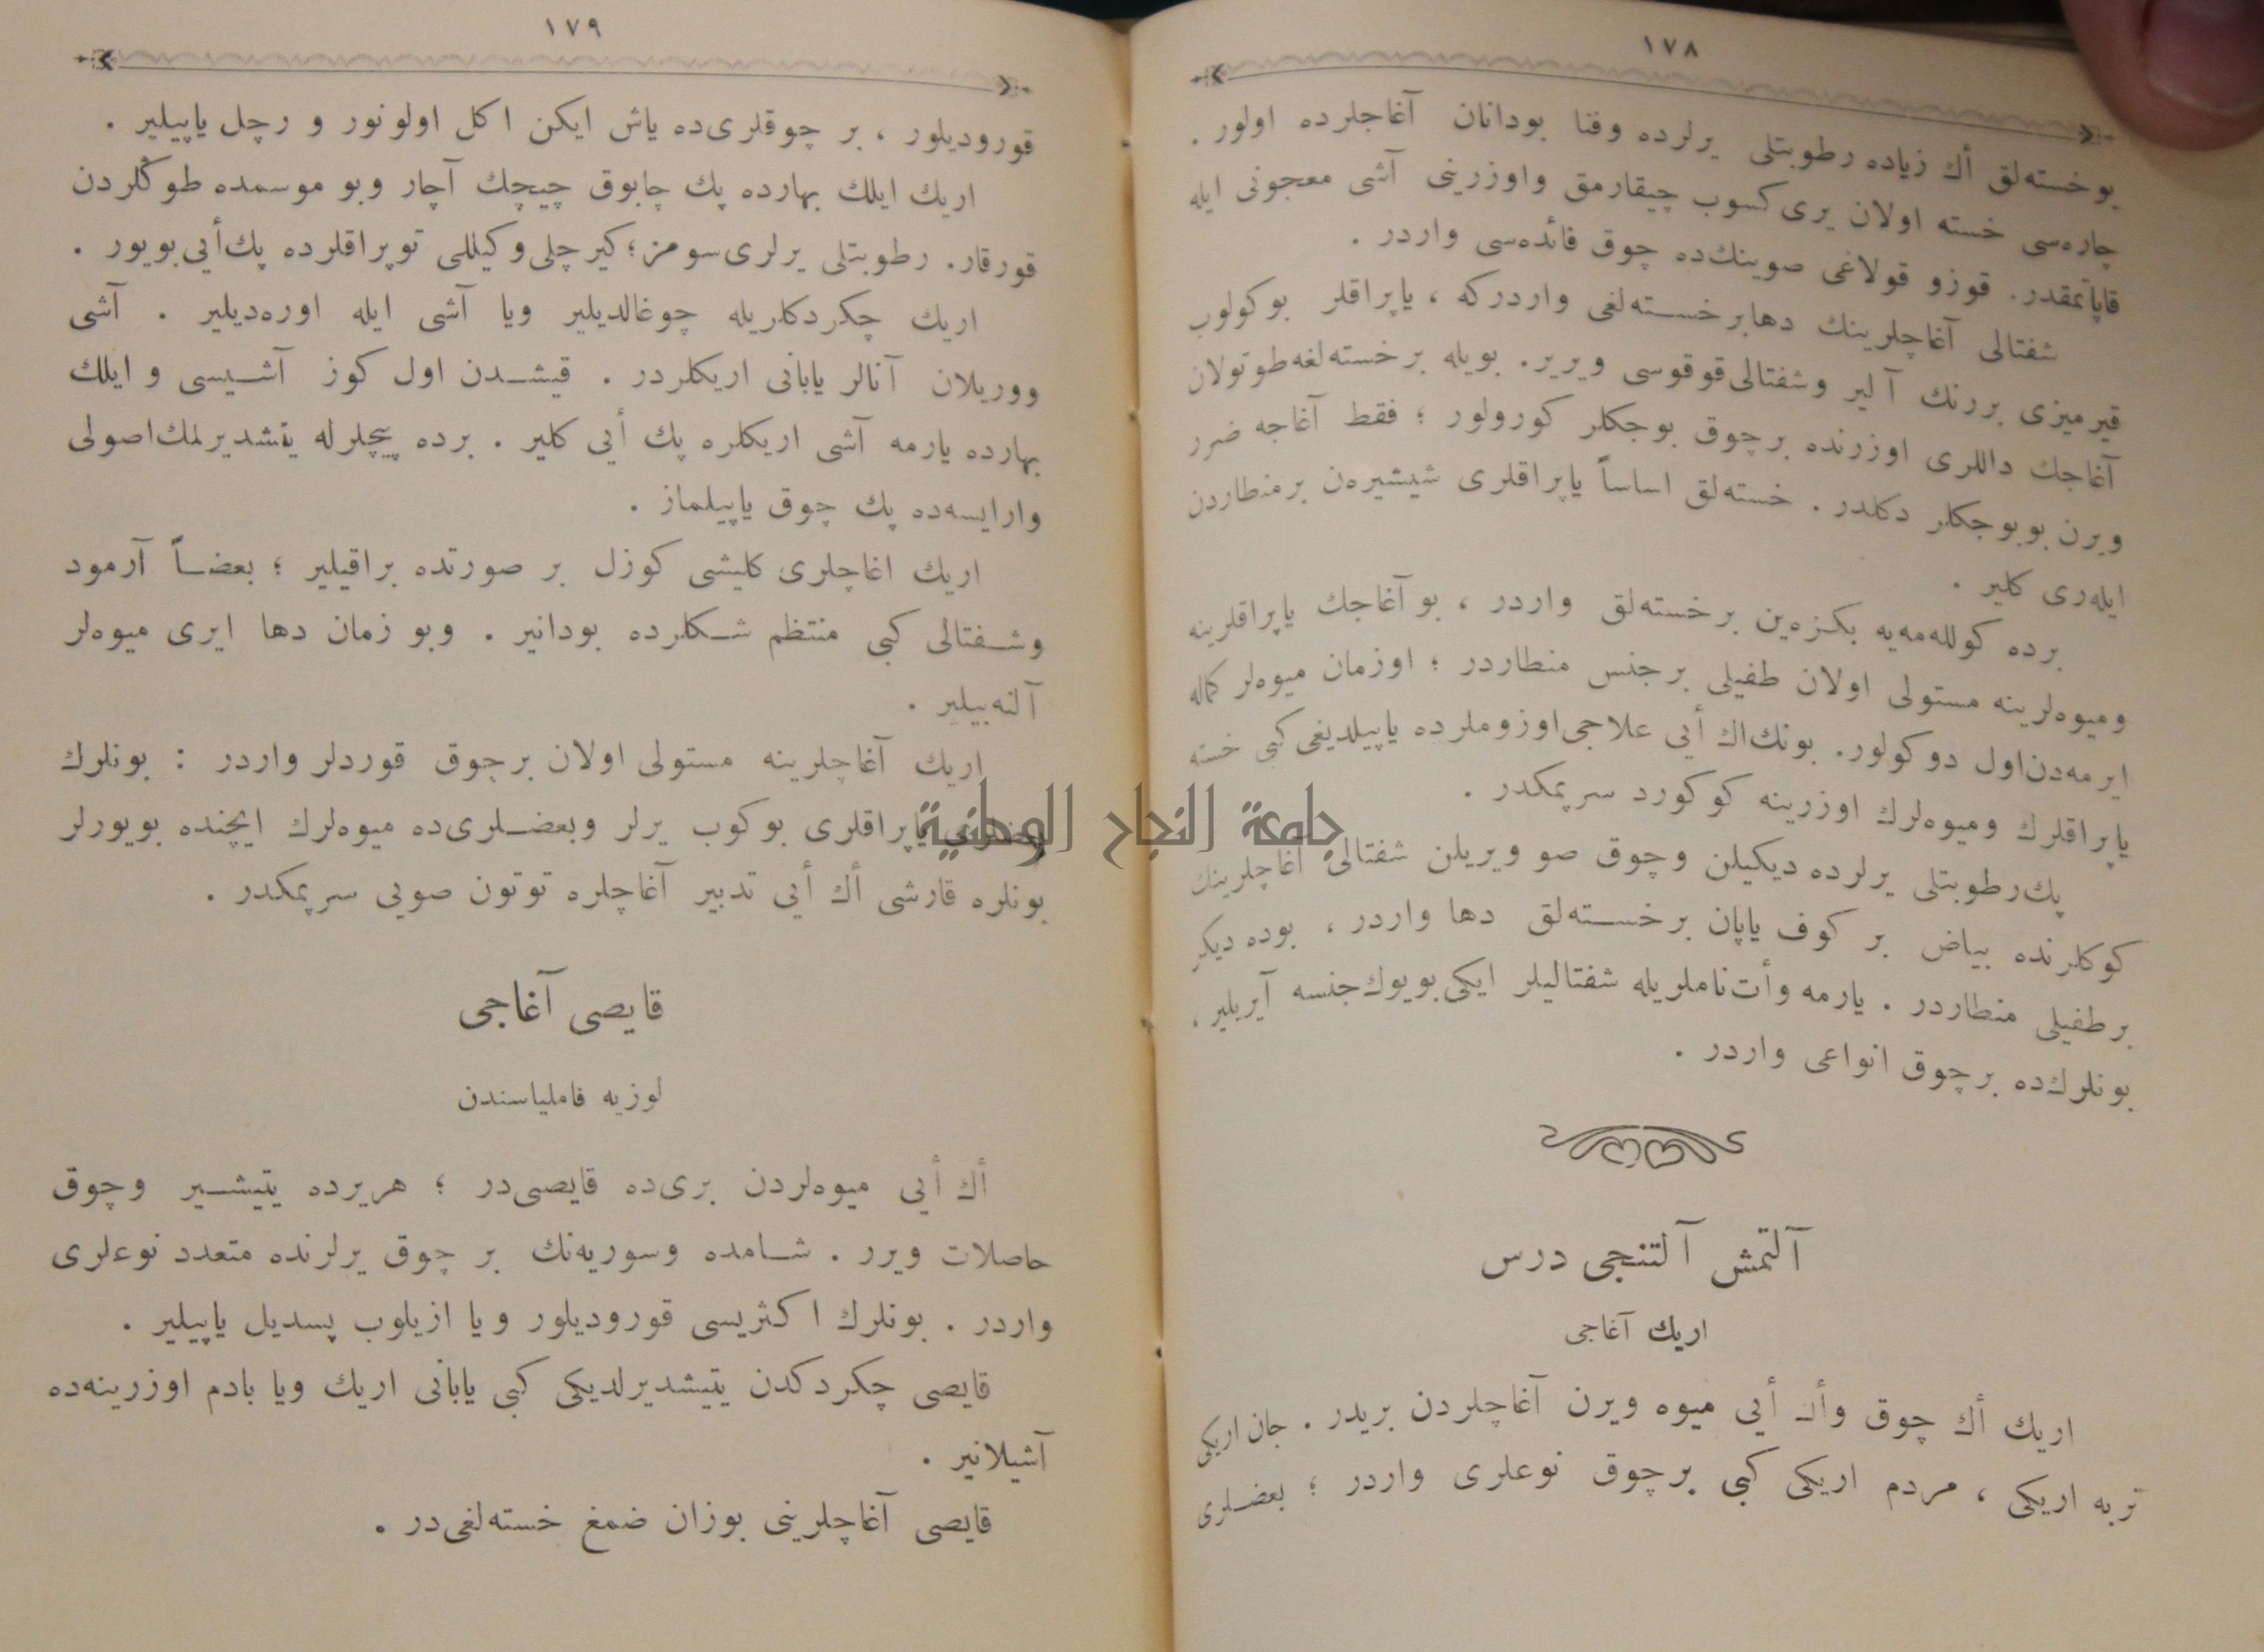 ١٧٨
بوخسته‌لق أك زیاده رطوبتلی یرلرده وفنا بودانان آغاجلرده اولور .
چاره‌سی خسته اولان یری کسوب چیقارمق واوزرینی آشی معجونی ایله
قاپاتمقدر. قوزو قولاغی صوینك‌ده چوق فائده‌سی واردر .
شفتالی آغاچلرینك دهابرخسته‌لغی واردرکه ، یاپراقلر بوکولوب
قیرمیزی بررنك آلیر وشفتالی‌قوقوسی ویریر. بویله برخسته‌لغه‌طوتولان
آغاجك داللری اوزرنده برچوق بوجکلر کورولور ؛ فقط آغاجه ضرر
ویرن بوبوجکلر دکلدر . خسته‌لق اساساً یاپراقلری شیشیره‌ن برمنطاردن
ایله‌ری کلیر .
برده کولله‌مه‌یه بکزه‌ین برخسته‌لق واردر ، بوآغاجك یاپراقلرینه
ومیوه‌لرینه مستولی اولان طفیلی برجنس منطاردر ؛ اوزمان میوه‌لر کماله
ایرمه‌دن‌اول دوکولور. بونك‌اك أیی علاجی‌اوزوملرده یاپیلدیغی‌کبی خسته
یاپراقلرك ومیوه‌لرك اوزرینه کوکورد سرپمکدر .
پك‌رطوبتلی یرلرده دیکیلن وچوق صو ویریلن شفتالی آغاچلرینك
کوکلرنده بیاض بر کوف یاپان برخسته‌لق دها واردر ، بوده دیکر
برطفیلی منطاردر . یارمه وأت‌ناملریله شفتالیلر ایکی‌بویوك‌جنسه آیریلیر ،
بونلرك‌ده برچوق انواعی واردر .
آلتمش آلتنجی درس
اریك آغاجی
اریك أك چوق وأك أیی میوه ویرن آغاچلردن بریدر . جان‌اریکی
تربه اریکی ، مردم اریکی کبی برچوق نوعلری واردر ؛ بعضلری
١٧٩
قورودیلور ، بر چوقلری‌ده یاش ایکن اکل اولونور و رچل یاپیلیر .
اریك ایلك بهارده پك چابوق چیچك آچار وبو موسمده طوڭلردن
قورقار. رطوبتلی یرلری‌سومز؛ کیرچلی‌وکیللی توپراقلرده پك‌أیی‌بویور .
اریك چکردکلریله چوغالدیلیر ویا آشی ایله اوره‌دیلیر . آشی
ووریلان آنالر یابانی اریکلردر . قیشدن اول کوز آشیسی و ایلك
بهارده یارمه آشی اریکلره پك أیی کلیر . برده پیچلرله یتشدیرلمك‌اصولی
وارایسه‌ده پك چوق یاپیلماز .
اریك اغاچلری کلیشی کوزل بر صورتده براقیلیر ؛ بعضاً آرمود
وشفتالی کبی منتظم شکلرده بودانیر . وبو زمان دها ایری میوه‌لر
آلنه‌بیلیر .
اریك آغاچلرینه مستولی اولان برچوق قوردلر واردر : بونلرك
بعضلری یاپراقلری بوکوب یرلر وبعضلری‌ده میوه‌لرك ایچنده بویورلر
بونلره قارشی أك أیی تدبیر آغاچلره توتون صویی سرپمکدر .
جامعة النجاح الوطنية
قایصی آغاجی
لوزیه فاملیاسندن
أك أیی میوه‌لردن بری‌ده قایصی‌در ؛ هریرده یتیشیر وچوق
حاصلات ویرر . شامده وسوریه‌نك بر چوق یرلرنده متعدد نوعلری
واردر . بونلرك اکثریسی قورودیلور ویا ازیلوب پسدیل یاپیلیر .
قایصی چکردکدن یتیشدیرلدیکی کبی یابانی اریك ویا بادم اوزرینه‌ده
آشیلانیر .
قایصی آغاچلرینی بوزان ضمغ خسته‌لغی‌در .